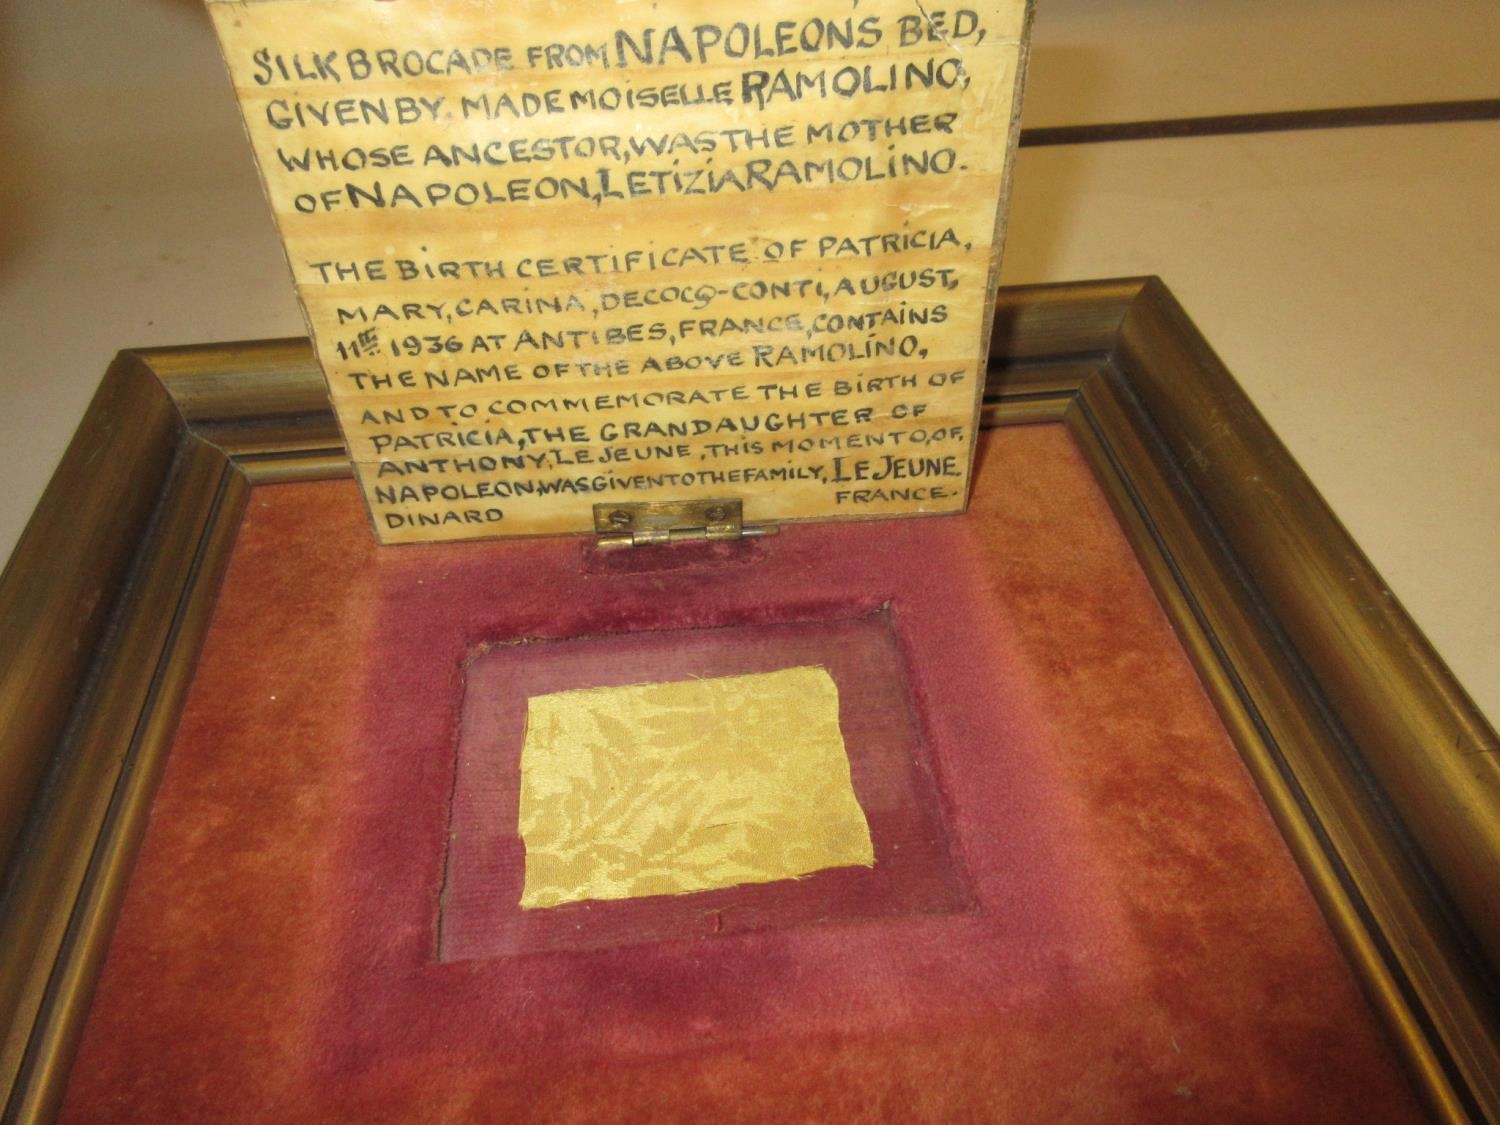 SILK BROCADE FROM NAPOLEONS BED,
GIVEN BY, MADEMOISELLE RAMOLINO,
WHOSE ANCESTOR, WAS THE MOTHER
OF NAPOLEON, LETIZIA RAMOLINO.
THE BIRTH CERTIFICATE OF PATRICIA,
MARY, CARINA, DECOCQ-CONTI, AUGUST,
11TH 1936 AT ANTIBES, FRANCE, CONTAINS
THE NAME OF THE ABOVE RAMOLINO,
AND TO COMMEMORATE THE BIRTH OF
PATRICIA, THE GRANDAUGHTER OF
ANTHONY, LE JEUNE, THIS MOMENTO, OF,
NAPOLEON, WAS GIVEN TO THE FAMILY, LE JEUNE.
DINARD FRANCE.